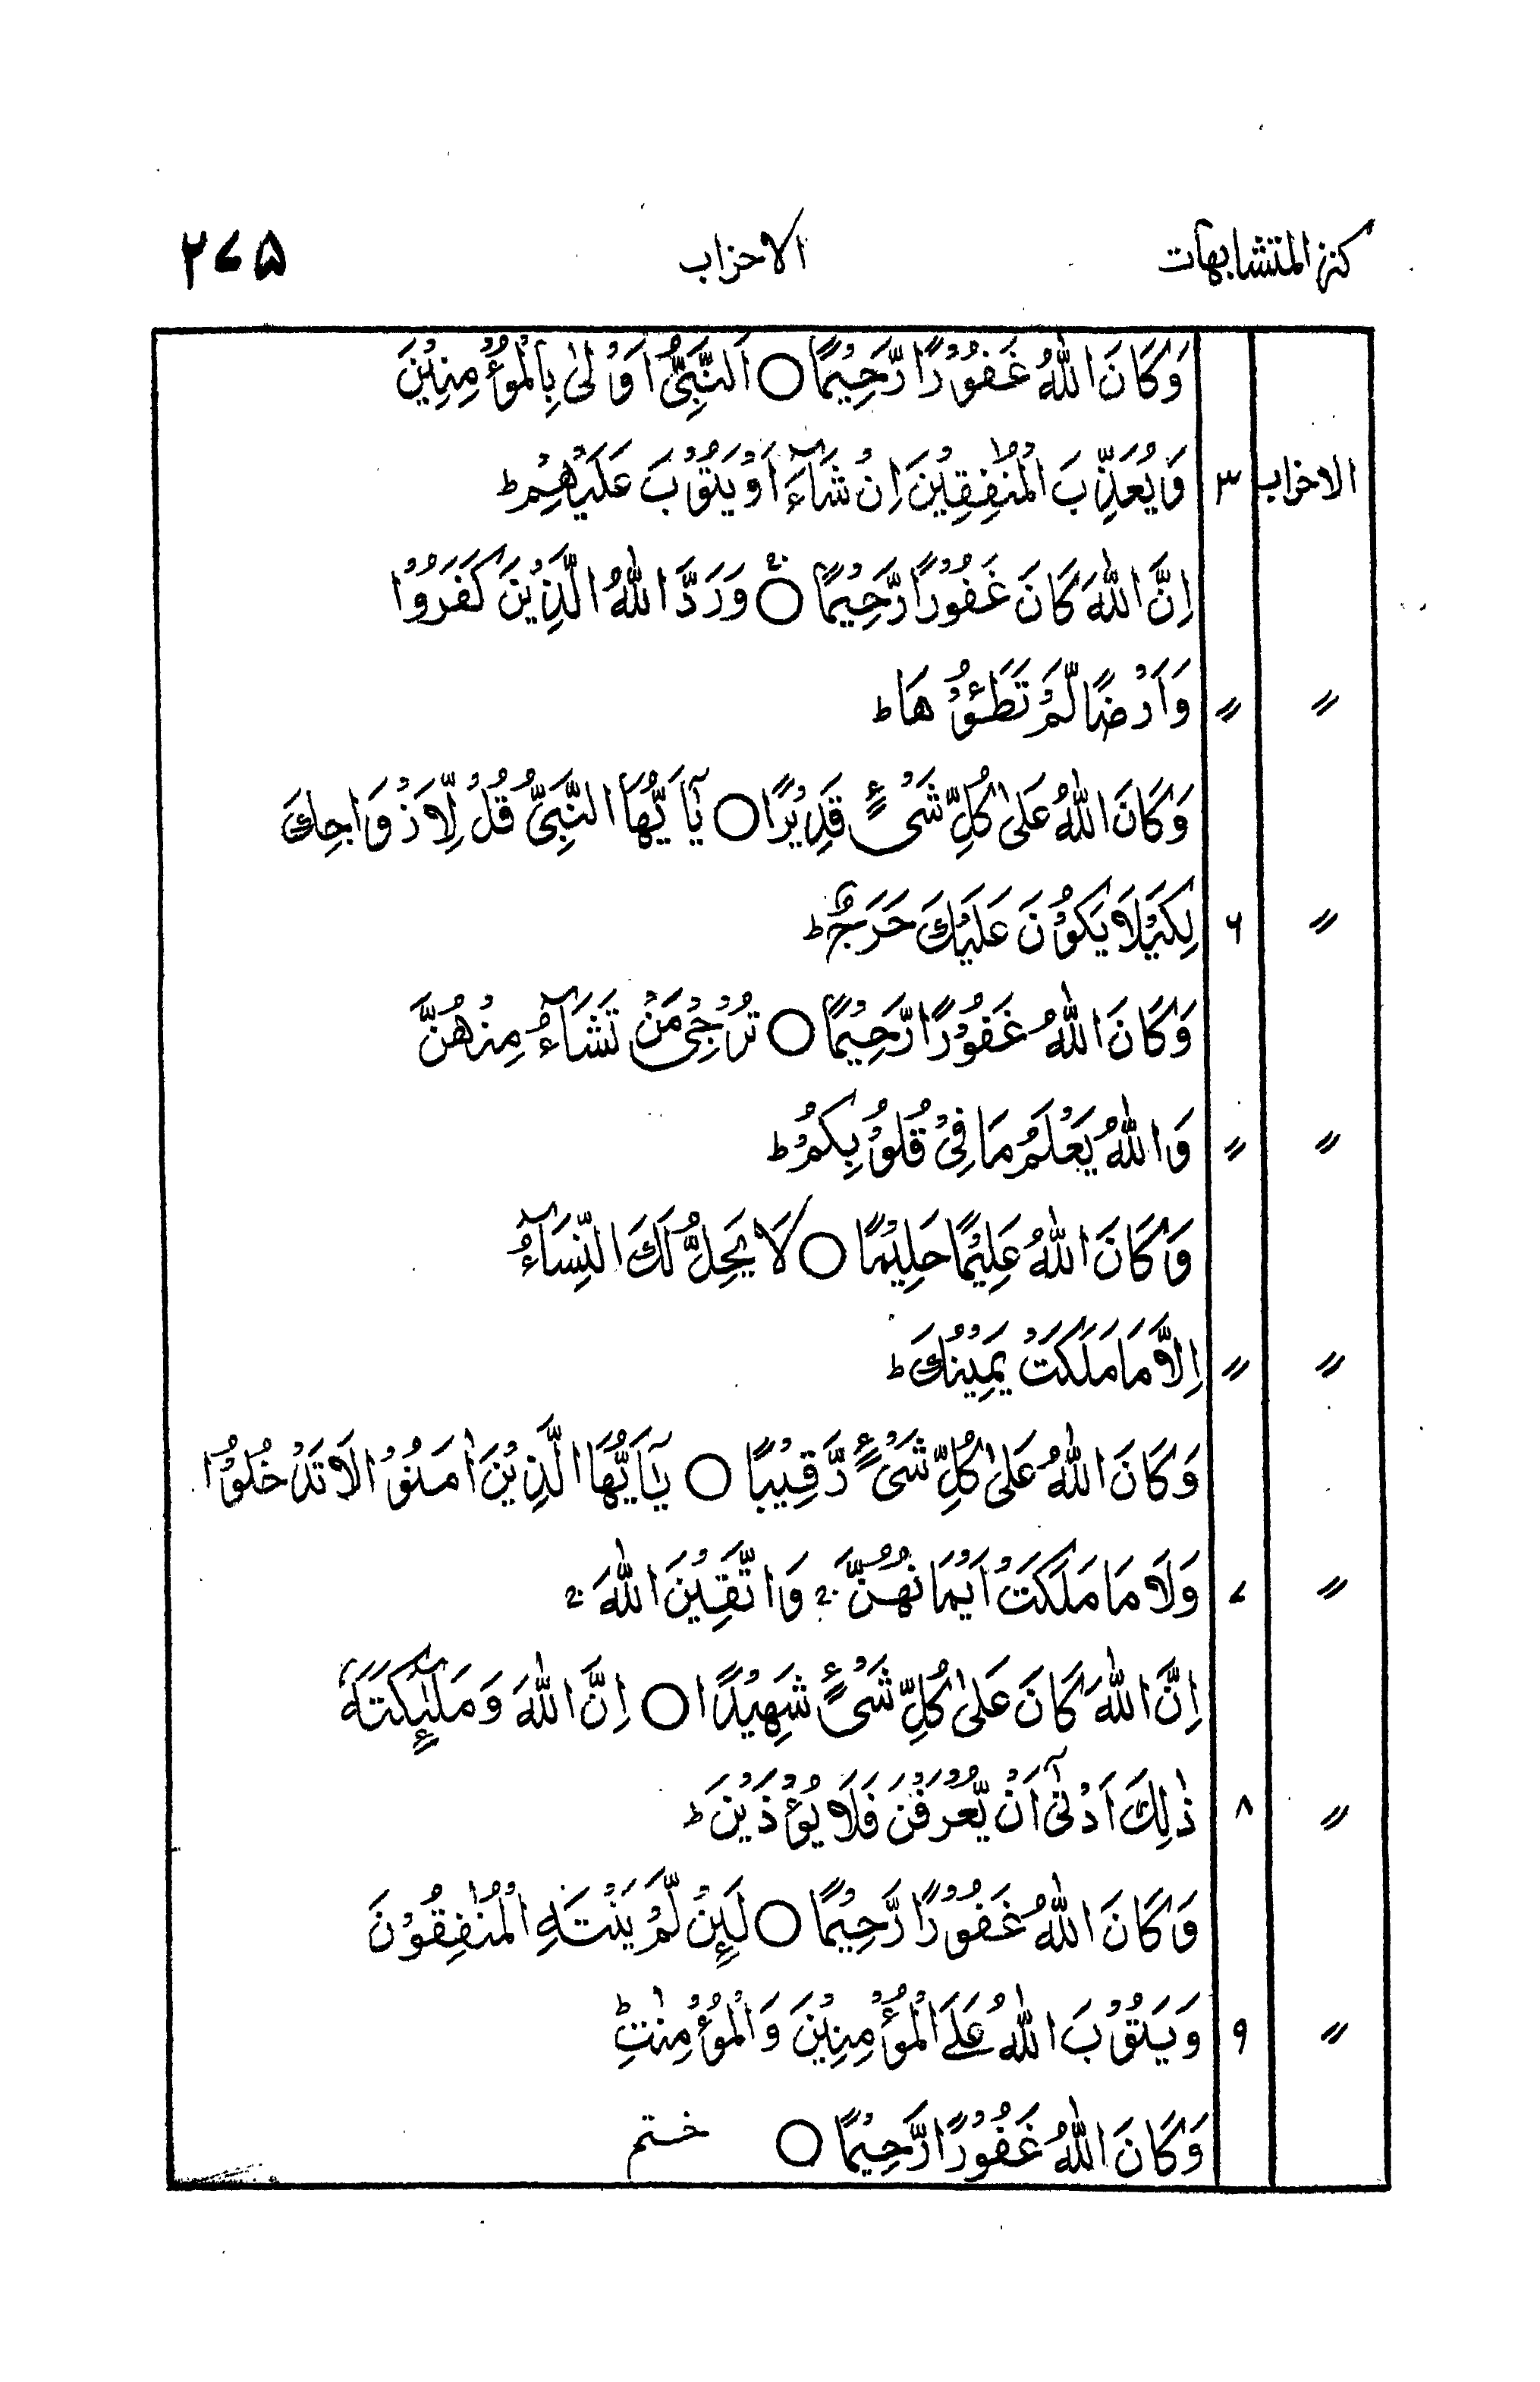 كنز المتشابهات الاحزاب ٢٧٥
وَكَانَ اللّٰهُ غَفُوْرًا رَّحِيْمًا ○ اَلنَّبِىُّ اَوْلىٰ بِالْمُؤْمِنِيْنَ
الاحزاب ٣ وَيُعَذِّبَ الْمُنٰفِقِيْنَ اِنْ شَآءَ اَوْ يَتُوْبَ عَلَيْهِمْ ؕ
اِنَّ اللّٰهَ كَانَ غَفُوْرًا رَّحِيْمًا ○ۚ وَرَدَّ اللّٰهُ الَّذِيْنَ كَفَرُوْا
〃 〃 وَاَرْضًا لَّمْ تَطَـُٔوْهَا ؕ
وَكَانَ اللّٰهُ عَلىٰ كُلِّ شَىْءٍ قَدِيْرًا ○ يٰٓاَيُّهَا النَّبِىُّ قُلْ لِّاَزْوَاجِكَ
〃 ٦ لِكَيْلَا يَكُوْنَ عَلَيْكَ حَرَجٌ ؕ
وَكَانَ اللّٰهُ غَفُوْرًا رَّحِيْمًا ○ تُرْجِىْ مَنْ تَشَآءُ مِنْهُنَّ
〃 〃 وَاللّٰهُ يَعْلَمُ مَا فِىْ قُلُوْبِكُمْ ؕ
وَكَانَ اللّٰهُ عَلِيْمًا حَلِيْمًا ○ لَا يَحِلُّ لَكَ النِّسَآءُ
〃 〃 اِلَّا مَا مَلَكَتْ يَمِيْنُكَ ؕ
وَكَانَ اللّٰهُ عَلىٰ كُلِّ شَىْءٍ رَّقِيْبًا ○ يٰٓاَيُّهَا الَّذِيْنَ اٰمَنُوْا لَا تَدْخُلُوْا
〃 ٧ وَلَا مَا مَلَكَتْ اَيْمَانُهُنَّ ۚ وَاتَّقِيْنَ اللّٰهَ ۚ
اِنَّ اللّٰهَ كَانَ عَلىٰ كُلِّ شَىْءٍ شَهِيْدًا ○ اِنَّ اللّٰهَ وَمَلٰٓئِكَتَهٗ
〃 ٨ ذٰلِكَ اَدْنىٰٓ اَنْ يُّعْرَفْنَ فَلَا يُؤْذَيْنَ ؕ
وَكَانَ اللّٰهُ غَفُوْرًا رَّحِيْمًا ○ لَئِنْ لَّمْ يَنْتَهِ الْمُنٰفِقُوْنَ
〃 ٩ وَيَتُوْبَ اللّٰهُ عَلَى الْمُؤْمِنِيْنَ وَالْمُؤْمِنٰتِ ؕ
وَكَانَ اللّٰهُ غَفُوْرًا رَّحِيْمًا ○ ختم